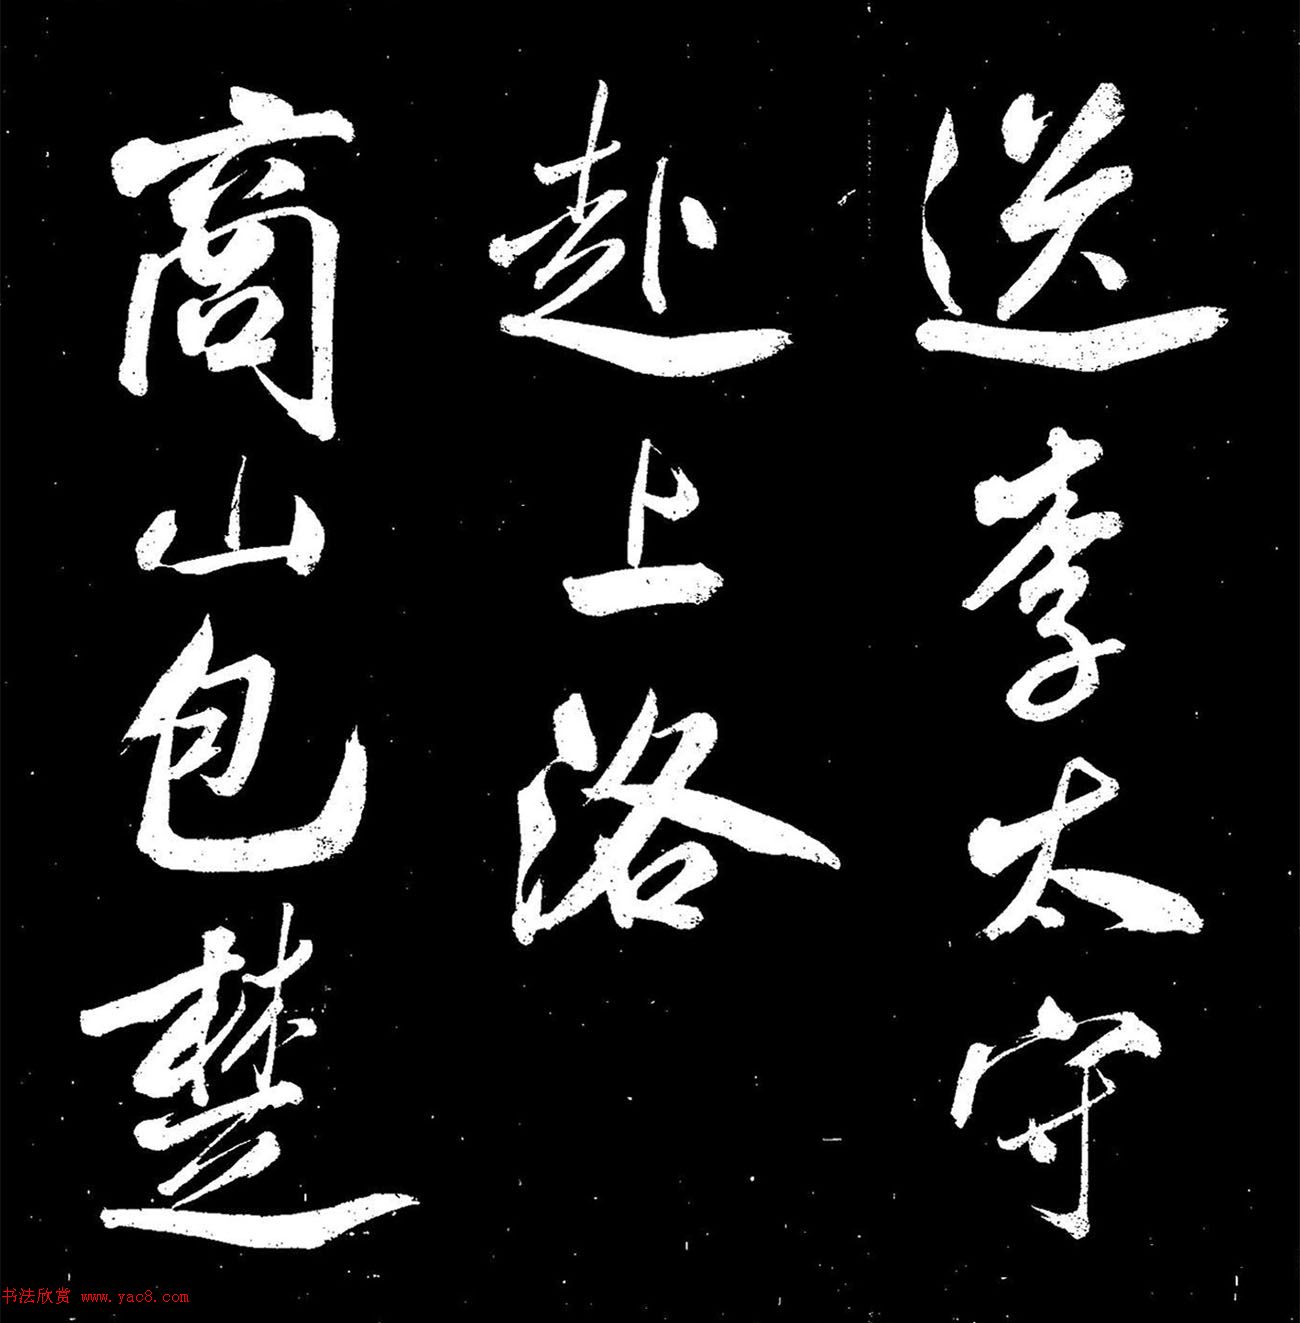 送李太守
赴上洛
商山包楚
书法欣赏 www.yac8.com